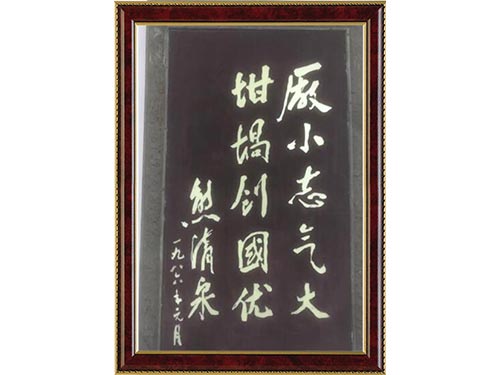 廠小志气大
坩堝创國优
熊清泉
一九八六年元月